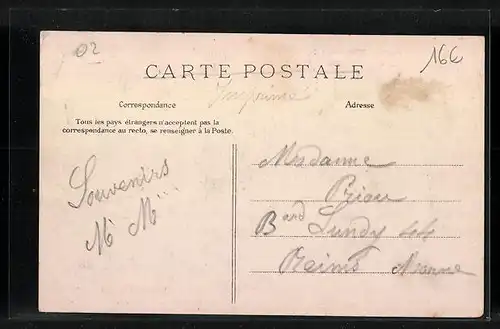 02
16€
CARTE POSTALE
Imprimé
Correspondance
Adresse
Tous les pays étrangers n'acceptent pas la
correspondance au recto, se renseigner à la Poste.
Souvenirs
M M
Madame
Prieu
Bard Lundy 44
Reims Marne